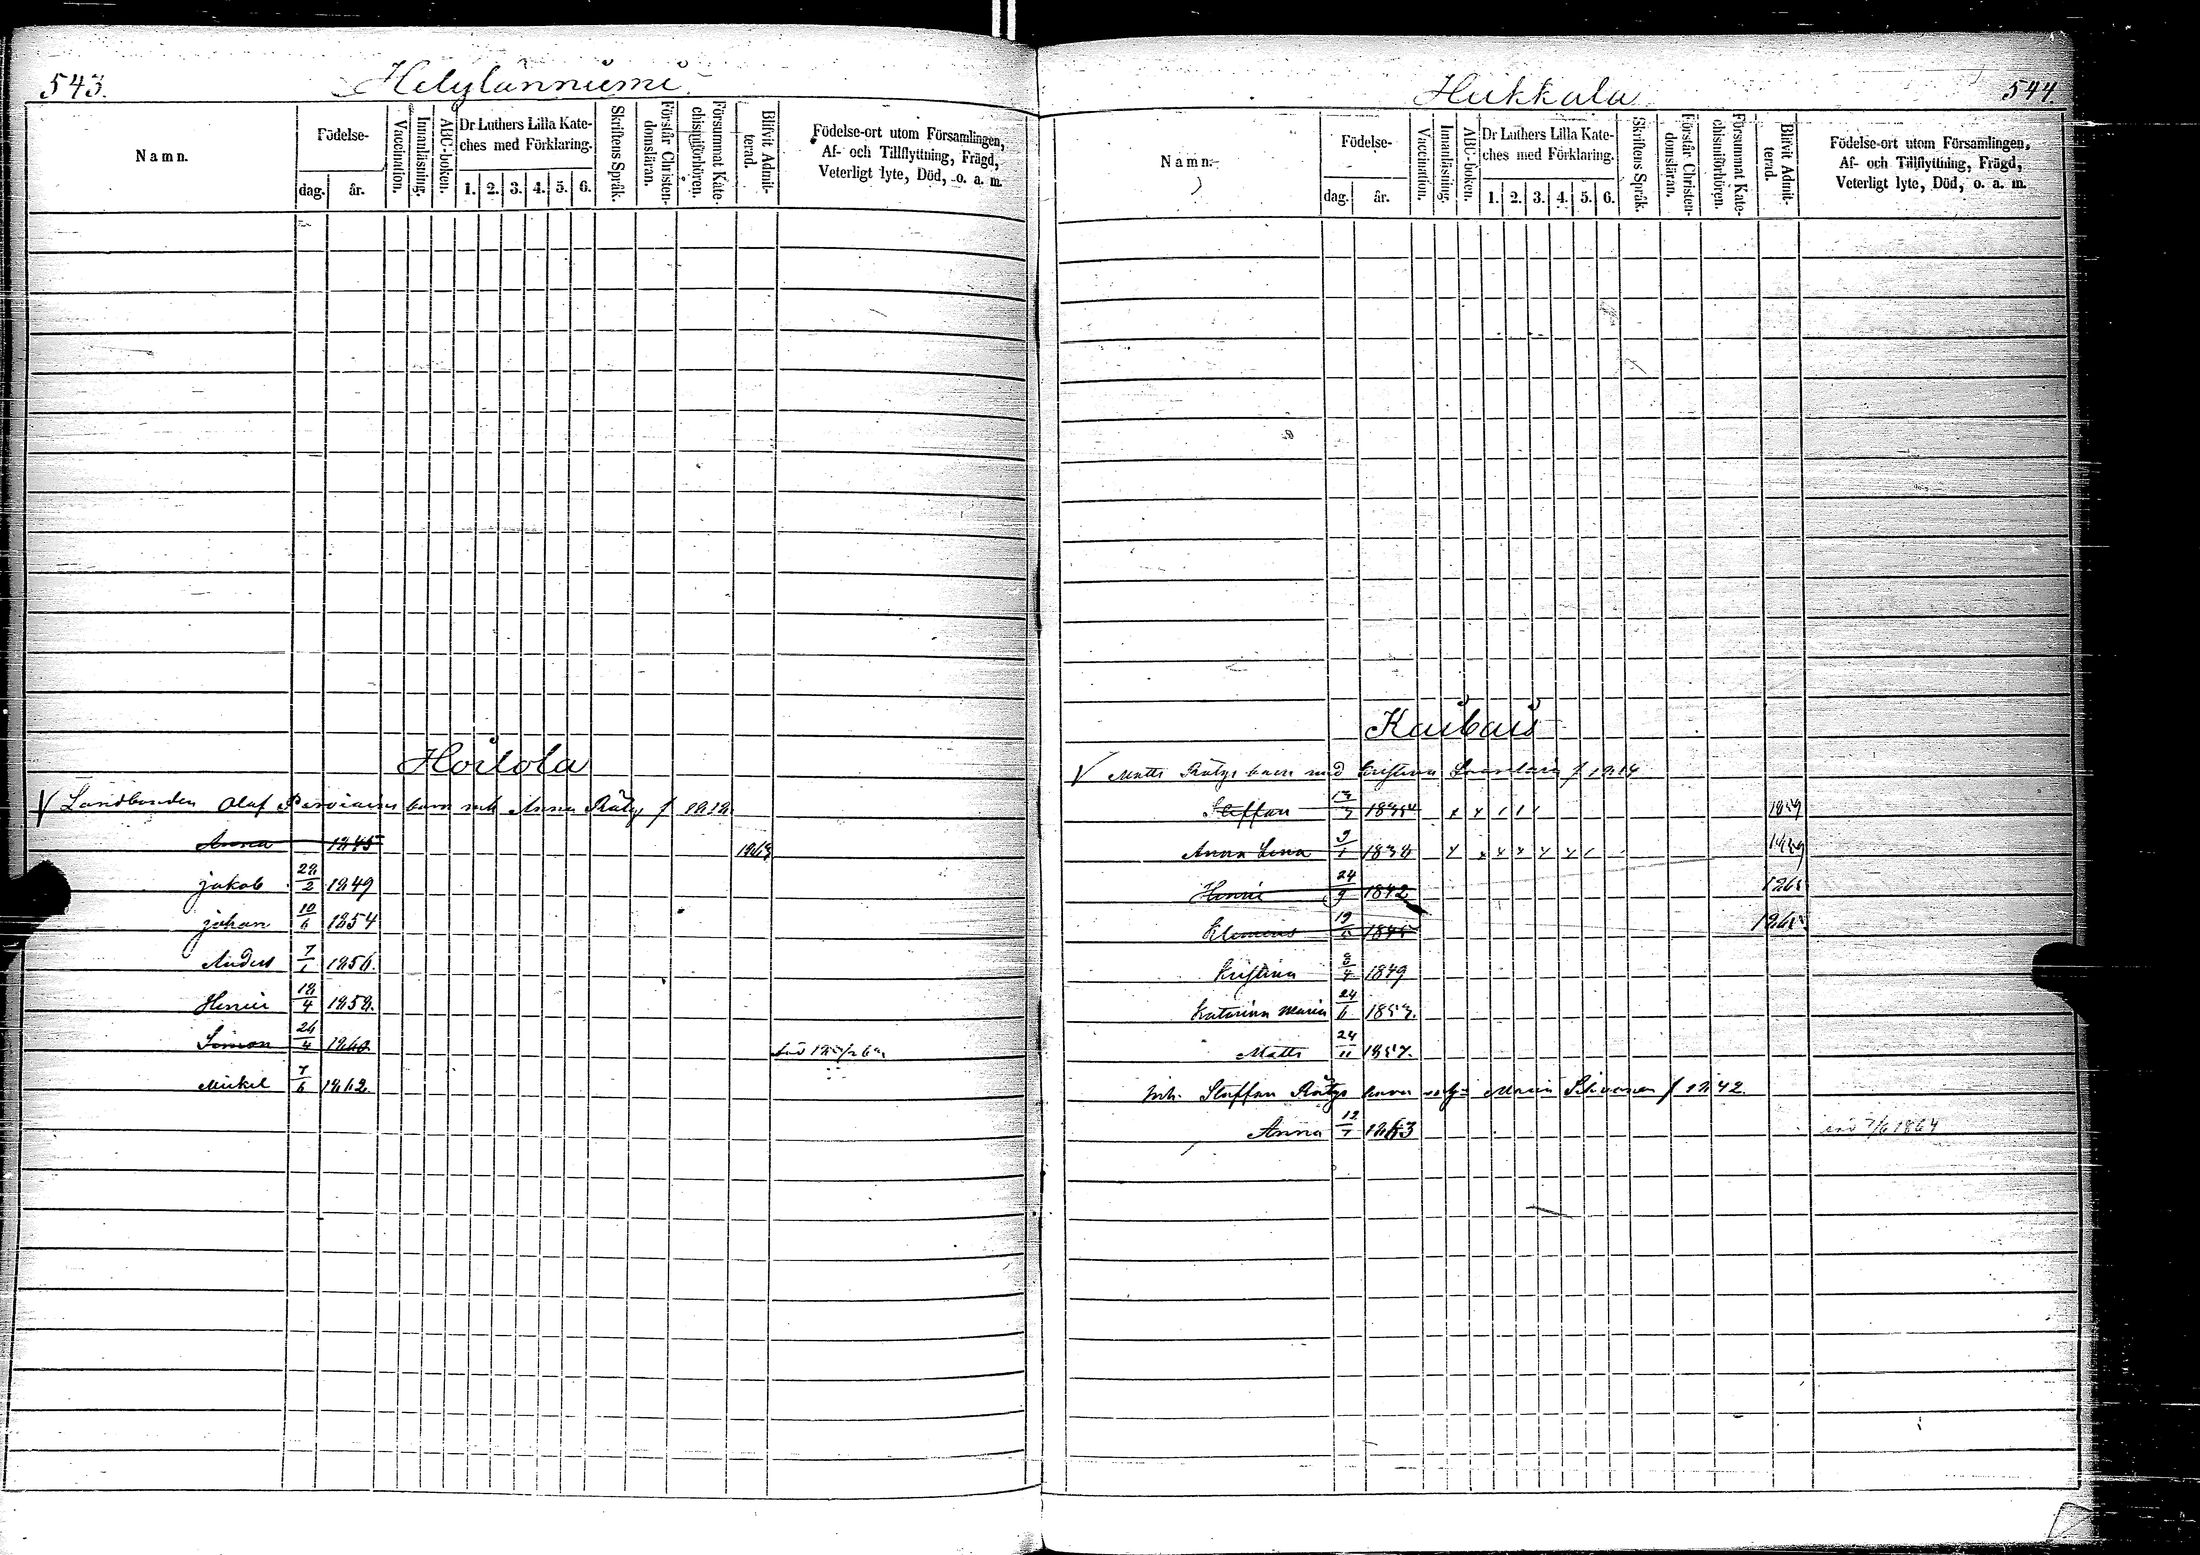 543.
Helylänniemi
Namn.
Födelse-
dag.
år.
Vaccination.
Innanläsning.
ABC-boken.
Dr Luthers Lilla Kate-
ches med Förklaring.
1. 2. 3. 4. 5. 6.
Skriftens Språk.
Förstår Christen-
domsläran.
Försummat Kate-
chismiförhören.
Blifvit Admit-
terad.
Födelse-ort utom Församlingen,
Af- och Tillflyttning, Frägd,
Veterligt lyte, Död, o. a. m.
Hoilola
V Landbonden Olaf barn Anna Räty f 1818.
Anna 1845 1863
jakob 28/2 1849
johan 10/6 1854
Anders 7/1 1856.
Henric 18/4 1858.
Simon 26/4 1860
Mickel 7/6 1862.
544.
Hukkala
Namn.
Födelse-
dag.
år.
Vaccination.
Innanläsning.
ABC-boken.
Dr Luthers Lilla Kate-
ches med Förklaring.
1. 2. 3. 4. 5. 6.
Skriftens Språk.
Förstår Christen-
domsläran.
Försummat Kate-
chismiförhören.
Blifvit Admit-
terad.
Födelse-ort utom Församlingen,
Af- och Tillflyttning, Frägd,
Veterligt lyte, Död, o. a. m.
Kaibais
V Matts Rätys barn med Kristina f 1814
Staffan 1859
Anna Lena 9/1 1838
Henric 24/9 1842
Klemens 1845
Kristina 3/4 1849
Katarina Maria 24/6 1853.
Matts 24/11 1857.
Staffan Rätys barn Maria f 1842.
Anna 12/7 1863 1864